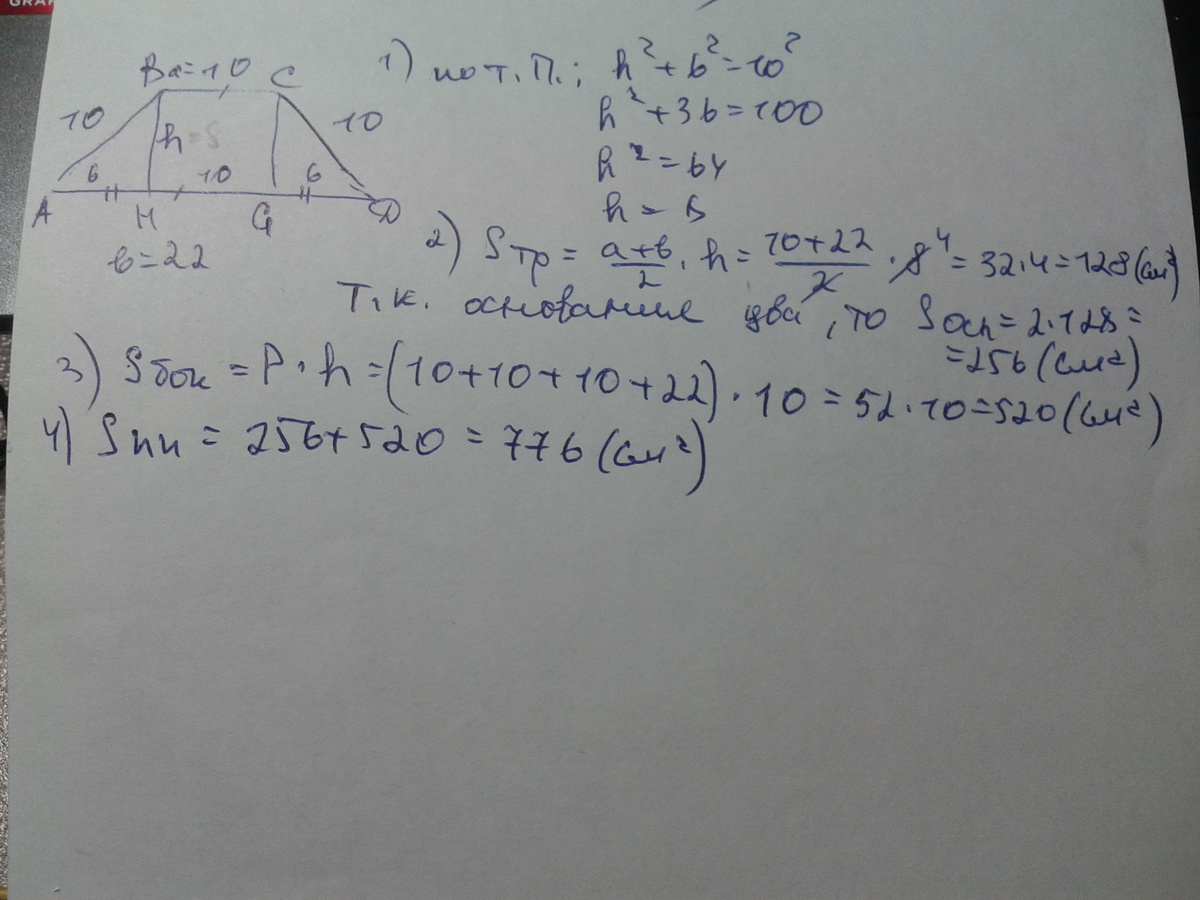 GRAF
Ba=10 C
10 h=8 10
6 10 6
A H G D
в=22
1) по т. П.; h²+6²=10²
h²+36=100
h²=64
h=8
2) Sтр = a+в/2 · h = 10+22/2 · 8 4 = 32·4=128(см²)
Т.к. основание два, то Sосн=2·128=
=256(см²)
3) Sбок = P·h=(10+10+10+22)·10=52·10=520(см²)
4) Sпп = 256+520=776(см²)